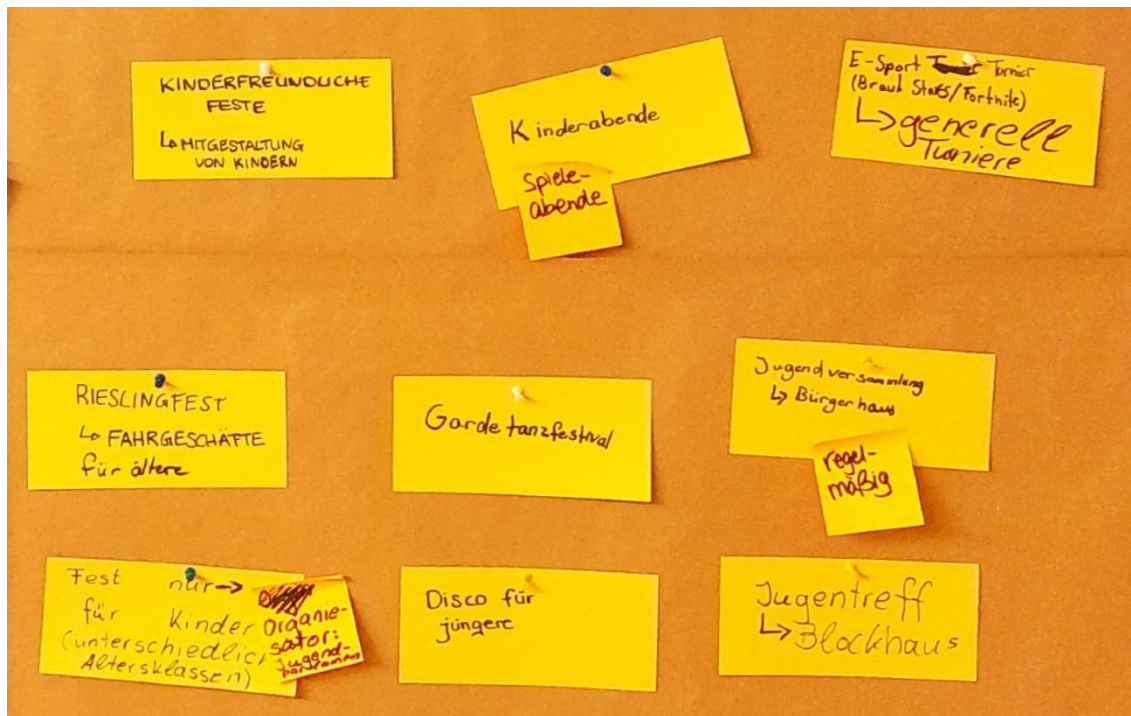 KINDERFREUNDLICHE
FESTE
↳ MITGESTALTUNG
VON KINDERN
Kinderabende
Spiele-
abende
E-Sport Turnier
(Braul Stars/Fortnite)
↳ generell
Turniere
RIESLINGFEST
↳ FAHRGESCHÄFTE
für ältere
Gardetanzfestival
Jugendversammlung
↳ Bürgerhaus
regel-
mäßig
Fest nur →
für Kinder
(unterschiedlich
Altersklassen)
Organie-
sator:
Jugend-
parlament
Disco für
jüngere
Jugentreff
↳ Blockhaus